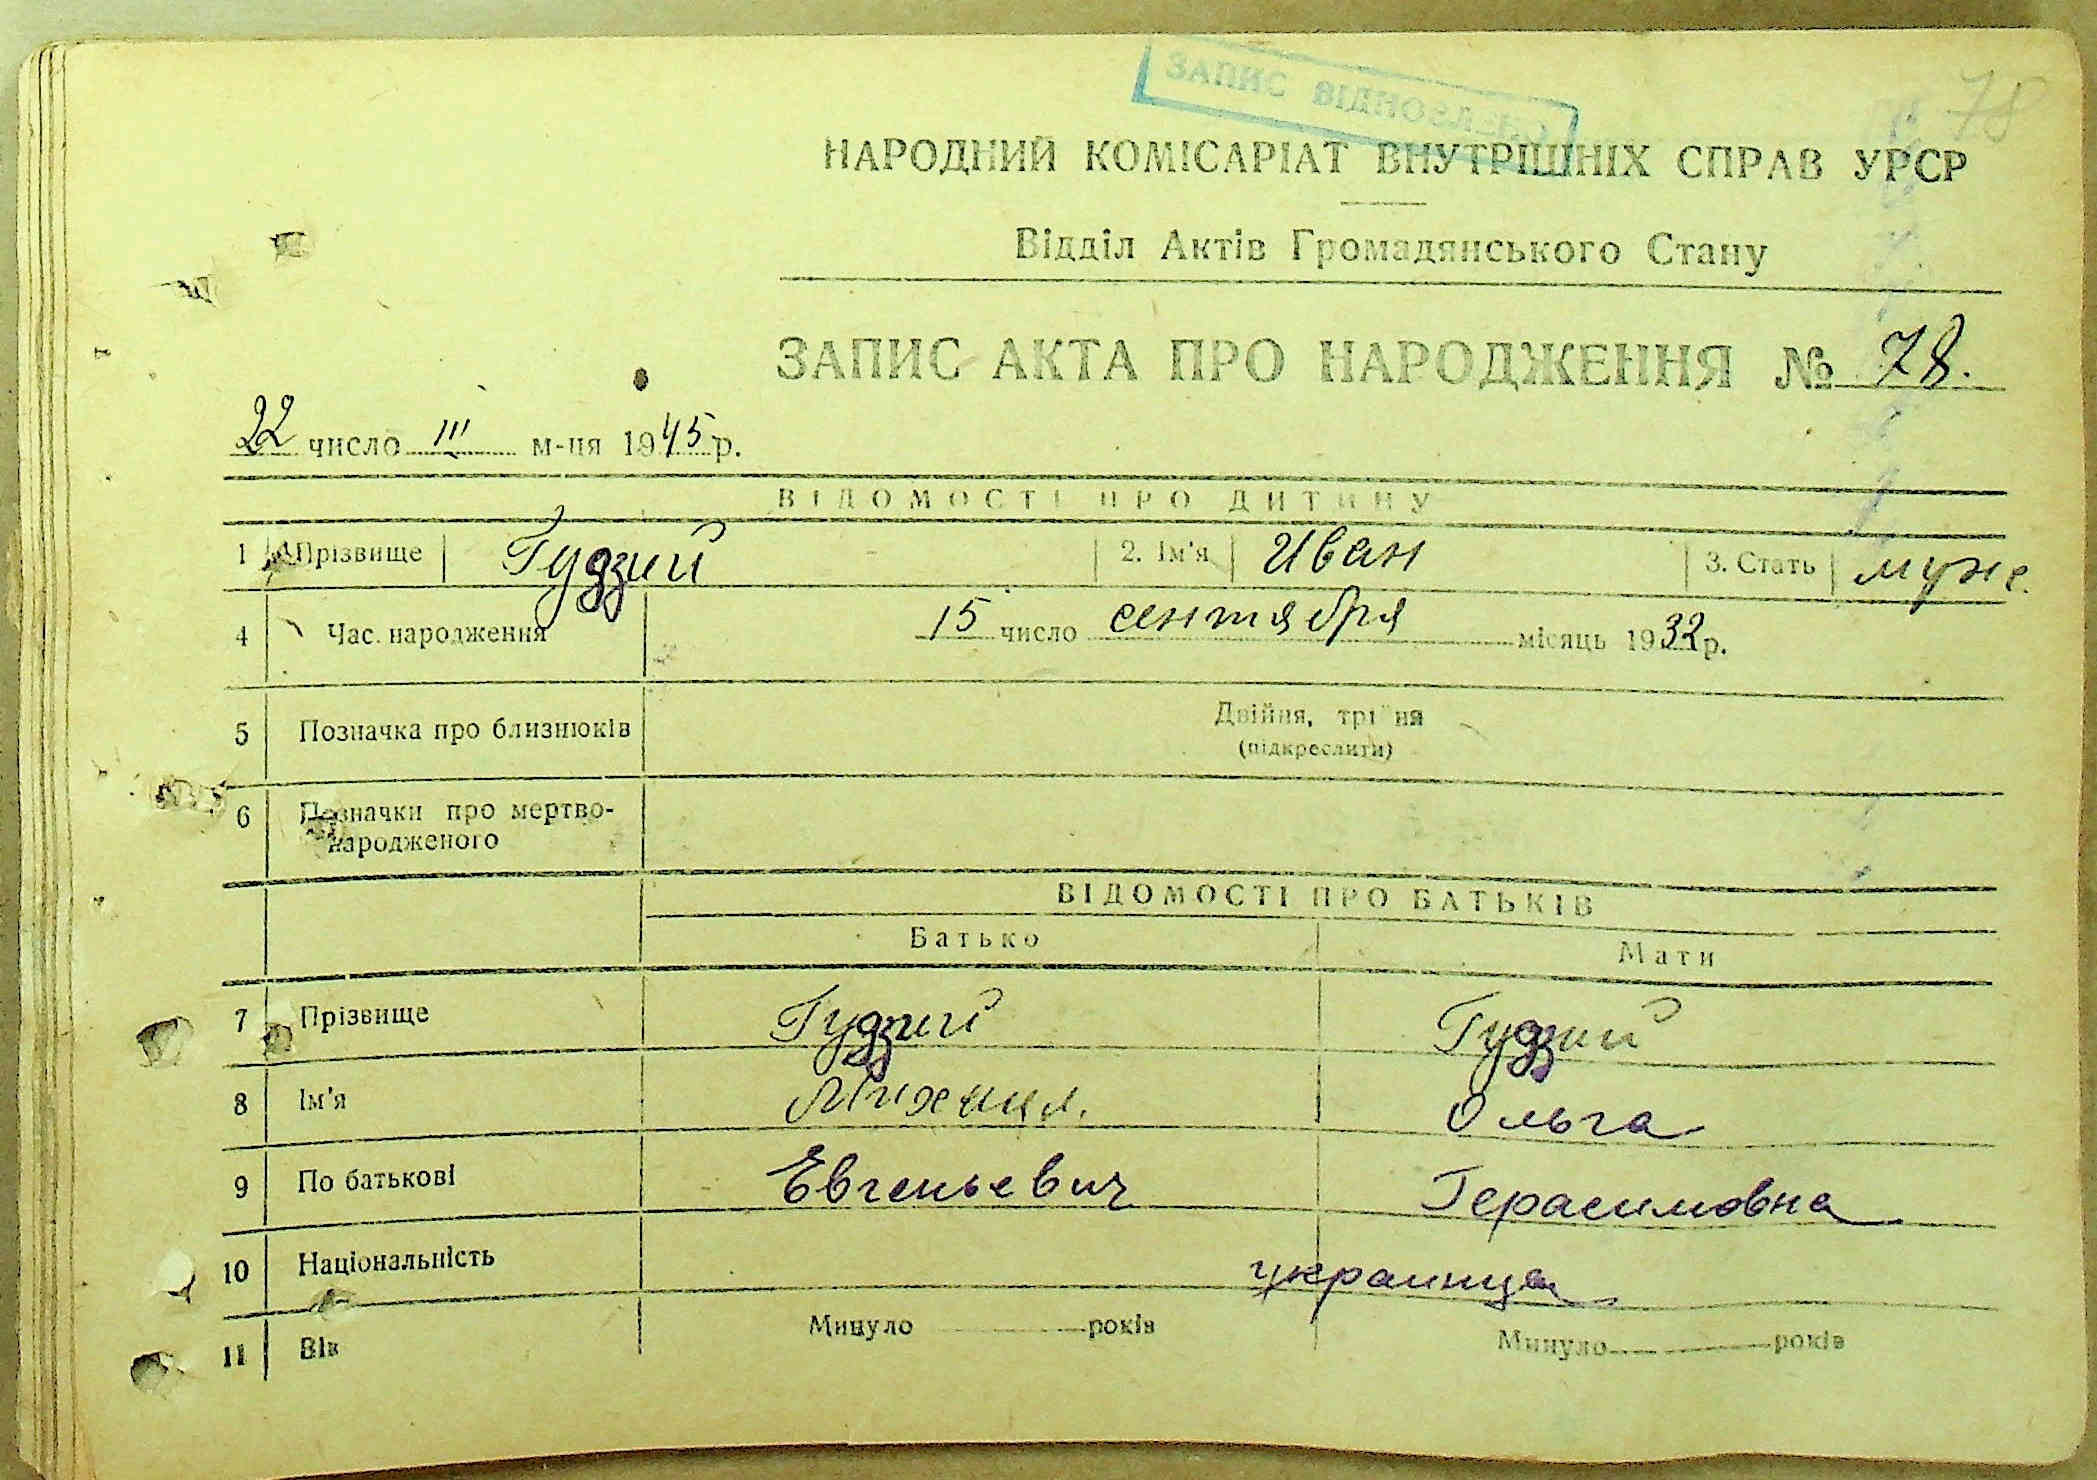 ЗАПИС ВІДНОВЛЕНО
78
НАРОДНИЙ КОМІСАРІАТ ВНУТРІШНІХ СПРАВ УРСР
Відділ Актів Громадянського Стану
ЗАПИС АКТА ПРО НАРОДЖЕННЯ № 78.
22 число III м-ця 1945 р.
ВІДОМОСТІ ПРО ДИТИНУ
1 Прізвище Гудзий 2. Ім'я Иван 3. Стать муж.
4 Час народження 15 число сентября місяць 1932 р.
5 Позначка про близнюків Двійня, трійня
(підкреслити)
6 Позначки про мертво-
народженого
ВІДОМОСТІ ПРО БАТЬКІВ
Батько Мати
7 Прізвище Гудзий Гудзий
8 Ім'я Михаил. Ольга
9 По батькові Евгеньевич Герасимовна
10 Національність украинцы
11 Вік Минуло років Минуло років